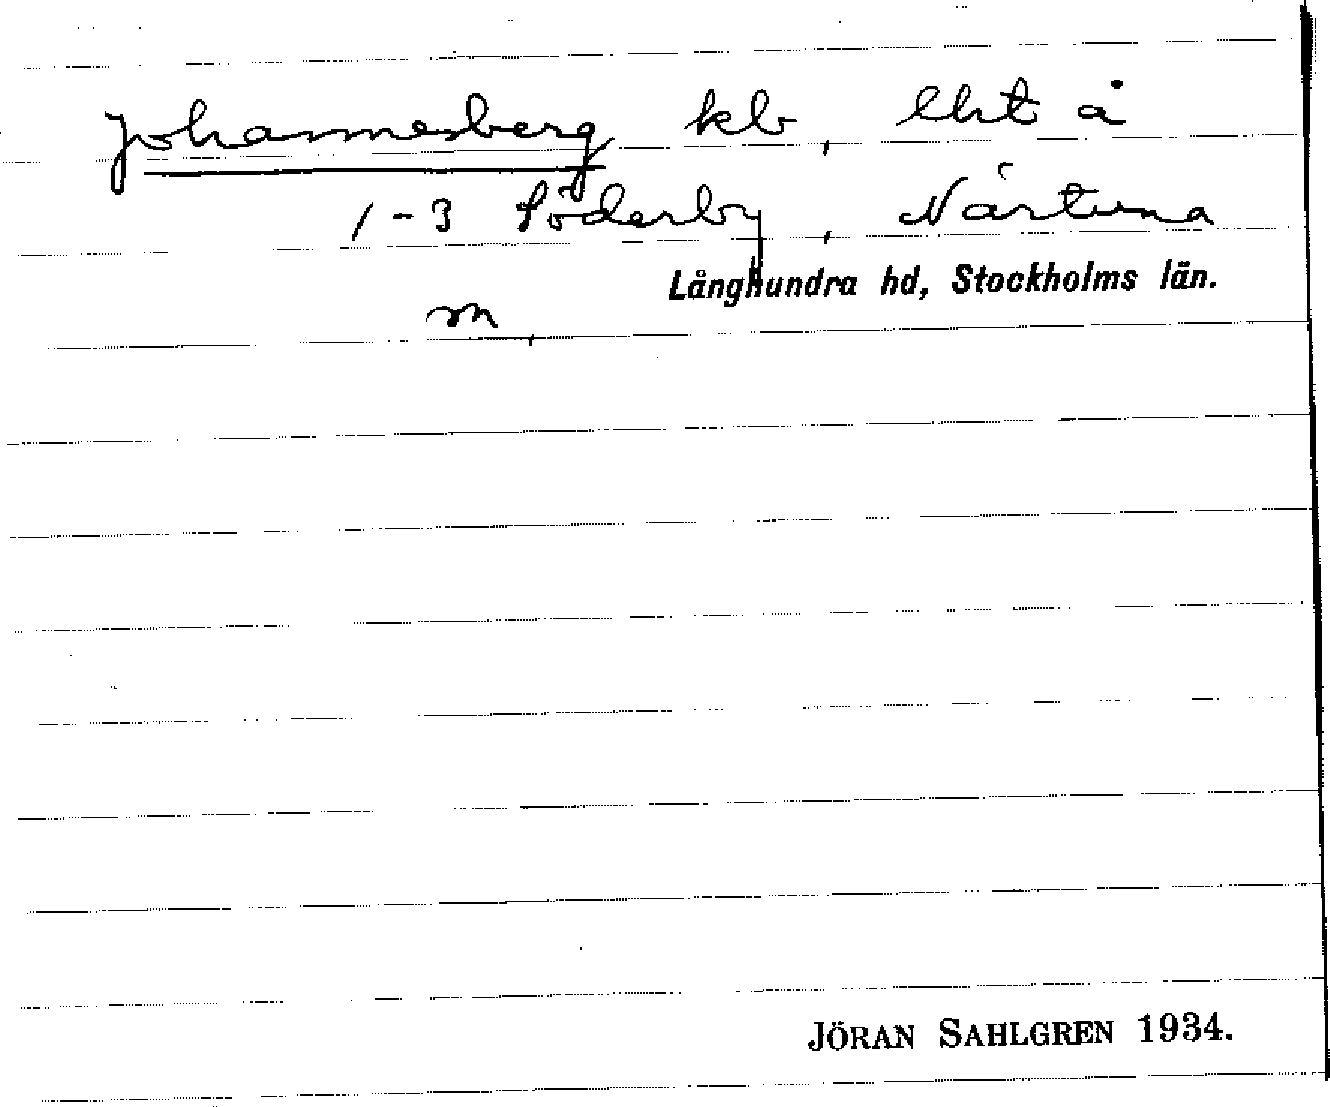 Johannesberg kb, lht å
1-3 Söderby, Närtuna
Långhundra hd, Stockholms län.
sn,
JÖRAN SAHLGREN 1934.